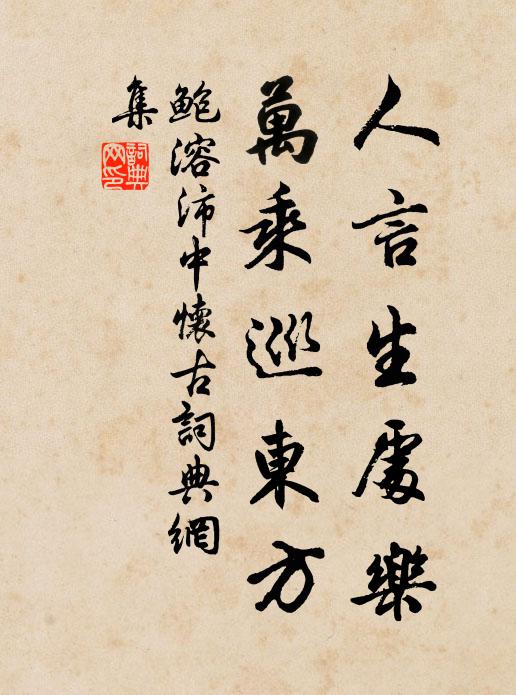 人言生處樂
萬乘巡東方
鮑溶沛中懷古詞典網
集
詞典
网印